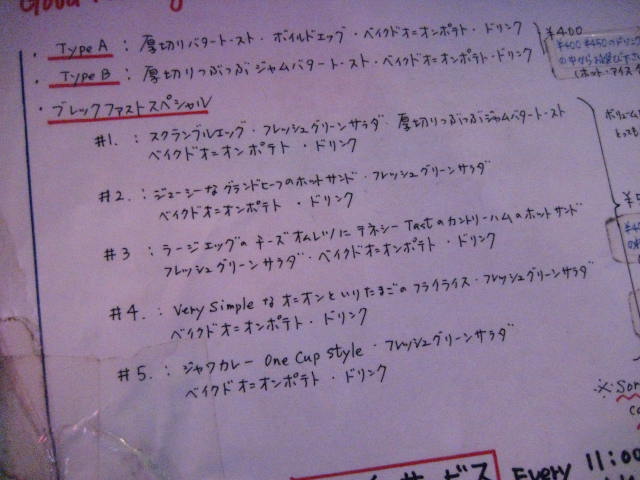 Good
・Type A : 厚切りバタートースト・ボイルドエッグ・ベイクドオニオンポテト・ドリンク
¥400
・Type B : 厚切りつぶつぶジャムバタートースト・ベイクドオニオンポテト・ドリンク
¥400 ¥450のドリンク
の中からお選び下さ
(ホット・アイス
・ブレックファストスペシャル
#1. : スクランブルエッグ・フレッシュグリーンサラダ・厚切りつぶつぶジャムバタートースト
ベイクドオニオンポテト・ドリンク
ボリューム
とっても
#2. : ジューシーなグランドビーフのホットサンド・フレッシュグリーンサラダ
ベイクドオニオンポテト・ドリンク
#3 : ラージエッグのチーズオムレツにテネシーTastのカントリーハムのホットサンド
フレッシュグリーンサラダ・ベイクドオニオンポテト・ドリンク
#4. : Very Simpleなオニオンといりたまごのフライライス・フレッシュグリーンサラダ
ベイクドオニオンポテト・ドリンク
#5. : ジャワカレー One Cup style・フレッシュグリーンサラダ
ベイクドオニオンポテト・ドリンク
※ Sor
サービス Every 11:00